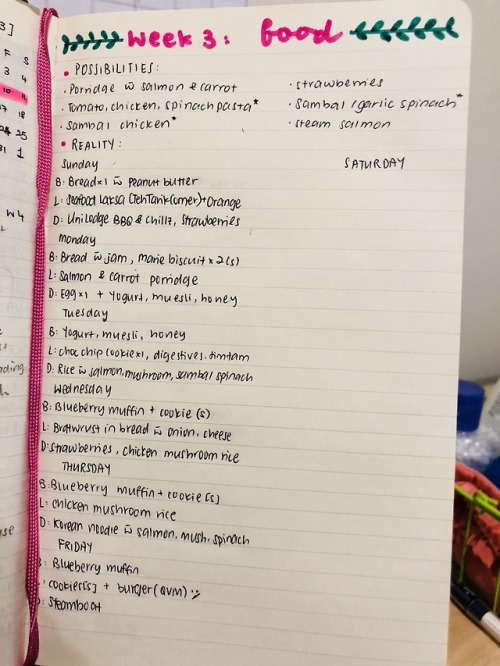 3]
F S
3 4
10 11
17 18
24 25
31 1
W4
Week 3: Food
• POSSIBILITIES:
· Porridge w̄ salmon & carrot
· Tomato, chicken, spinach pasta*
· Sambal chicken*
· strawberries
· Sambal / garlic spinach*
· Steam salmon
• REALITY:
Sunday
B: Bread x1 w̄ Peanut butter
L: Seafood Laksa (TehTarik(Omer)+Orange
D: UniLodge BBQ & chillz, strawberries
Monday
B: Bread w̄ jam, marie biscuit x2(s)
L: Salmon & carrot porridge
D: Egg x1 + Yogurt, muesli, honey
Tuesday
B: Yogurt, muesli, honey
L: choc chip cookie x1, digestives, timtam
D: Rice w̄ salmon, mushroom, sambal spinach
Wednesday
B: Blueberry muffin + cookie (s)
L: Bratwrust in bread w̄ onion, cheese
D: Strawberries, chicken mushroom rice
THURSDAY
B: Blueberry muffin + cookie [s]
L: chicken mushroom rice
D: Korean noodle w̄ salmon, mush, spinach
FRIDAY
: Blueberry muffin
: cookies[s] + burger (QVM) :)
: Steamboat
SATURDAY